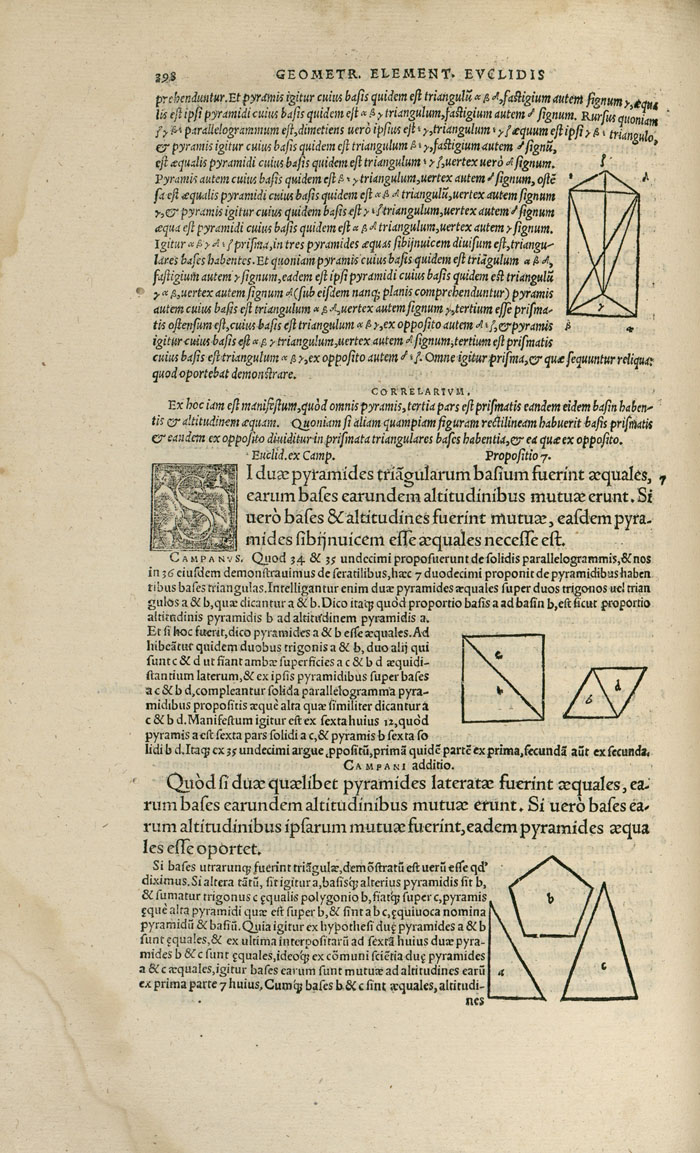 398 GEOMETR. ELEMENT. EVCLIDIS
prehenduntur. Et pyramis igitur cuius basis quidem est triangulũ α β δ, fastigium autem signum γ, æqua
lis est ipsi pyramidi cuius basis quidem est α β γ triangulum, fastigium autem δ signum. Rursus quoniam
ζ γ β ε parallelogrammum est, dimetiens uerò ipsius est ε γ, triangulum ε γ ζ æquum est ipsi γ β ε triangulo,
& pyramis igitur cuius basis quidem est triangulum β ε γ, fastigium autem δ signũ,
est æqualis pyramidi cuius basis quidem est triangulum ε γ ζ, uertex uerò δ signum.
Pyramis autem cuius basis quidem est β ε γ triangulum, uertex autem δ signum, ostẽ
sa est æqualis pyramidi cuius basis quidem est α β δ triangulũ, uertex autem signum
γ, & pyramis igitur cuius quidem basis est γ ε ζ triangulum, uertex autem δ signum
æqua est pyramidi cuius basis quidem est α β δ triangulum, uertex autem γ signum.
Igitur α β γ δ ε ζ prisma, in tres pyramides æquas sibijnuicem diuisum est, triangu-
lares bases habentes. Et quoniam pyramis cuius basis quidem est triãgulum α β δ,
fastigium autem γ signum, eadem est ipsi pyramidi cuius basis quidem est triangulũ
γ α β, uertex autem signum δ (sub eisdem nanq; planis comprehenduntur) pyramis
autem cuius basis quidem est triangulum α β δ, uertex autem signum γ, tertium esse prisma-
tis ostensum est, cuius basis est triangulum α β γ, ex opposito autem δ ε ζ, & pyramis
igitur cuius basis est triangulum α β γ, uertex autem δ signum, tertium est prismatis
cuius basis est triangulum α β γ, ex opposito autem δ ε ζ. Omne igitur prisma, & quæ sequuntur reliqua:
quod oportebat demonstrare.
ζ
ε δ
γ
β α
CORRELARIVM.
Ex hoc iam est manifestum, quòd omnis pyramis, tertia pars est prismatis eandem eidem basin haben-
tis & altitudinem æquam. Quoniam si aliam quampiam figuram rectilineam habuerit basis prismatis
& eandem ex opposito diuiditur in prismata triangulares bases habentia, & ea quæ ex opposito.
Euclid. ex Camp. Propositio 7.
SI duæ pyramides triãgularum basium fuerint æquales, 7
earum bases earundem altitudinibus mutuæ erunt. Si
uerò bases & altitudines fuerint mutuæ, easdem pyra-
mides sibijnuicem esse æquales necesse est.
CAMPANVS. Quod 34 & 35 undecimi proposuerunt de solidis parallelogrammis, & nos
in 36 eiusdem demonstrauimus de seratilibus, hæc 7 duodecimi proponit de pyramidibus haben
tibus bases triangulas. Intelligantur enim duæ pyramides æquales super duos trigonos uel trian
gulos a & b, quæ dicantur a & b. Dico itaq; quòd proportio basis a ad basin b, est sicut proportio
altitudinis pyramidis b ad altitudinem pyramidis a.
Et si hoc fuerit, dico pyramides a & b esse æquales. Ad
hibeãtur quidem duobus trigonis a & b, duo alij qui
sunt c & d ut fiant ambæ superficies a c & b d æquidi-
stantium laterum, & ex ipsis pyramidibus super bases
a c & b d, compleantur solida parallelogramma pyra-
midibus propositis æquè alta quæ similiter dicantur a
c & b d. Manifestum igitur est ex sexta huius 12, quòd
pyramis a est sexta pars solidi a c, & pyramis b sexta so
lidi b d. Itaq; ex 35 undecimi argue ꝓpositũ, primã quidẽ partẽ ex prima, secundã aũt ex secunda.
b d
CAMPANI additio.
Quòd si duæ quælibet pyramides lateratæ fuerint æquales, ea-
rum bases earundem altitudinibus mutuæ erunt. Si uerò bases ea-
rum altitudinibus ipsarum mutuæ fuerint, eadem pyramides æqua
les esse oportet.
Si bases utrarunq; fuerint triãgulæ, demõstratũ est uerũ esse qđ
diximus. Si altera tãtũ, sit igitur a, basisq; alterius pyramidis sit b,
& sumatur trigonus c ęqualis polygonio b, fiatq; super c, pyramis
ęquè alta pyramidi quæ est super b, & sint a b c, ęquiuoca nomina
pyramidũ & basiũ. Quia igitur ex hypothesi duę pyramides a & b
sunt ęquales, & ex ultima interpositarũ ad sextã huius duæ pyra-
mides b & c sunt ęquales, ideoq; ex cõmuni sciẽtia duę pyramides
a & c æquales, igitur bases earum sunt mutuæ ad altitudines earũ
ex prima parte 7 huius. Cumq; bases b & c sint æquales, altitudi-
nes
b
a c